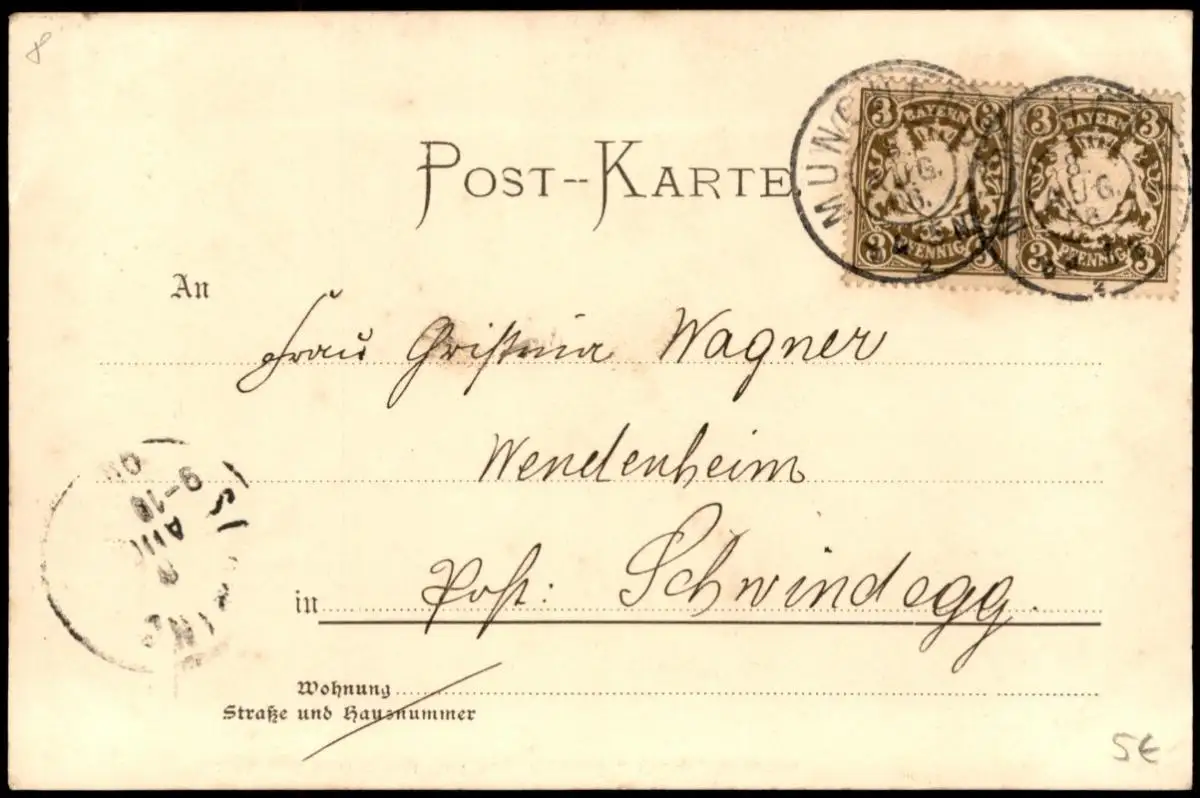 8
POST-KARTE.
3 BAYERN 3
3 PFENNIG 3
3 BAYERN 3
3 PFENNIG 3
MÜNCHEN
8. AUG.
2
8. AUG.
2
An
Frau Christina Wagner
Wendenheim
in Post: Schwindegg.
9-10
AUG
Wohnung
Straße und Hausnummer
5€